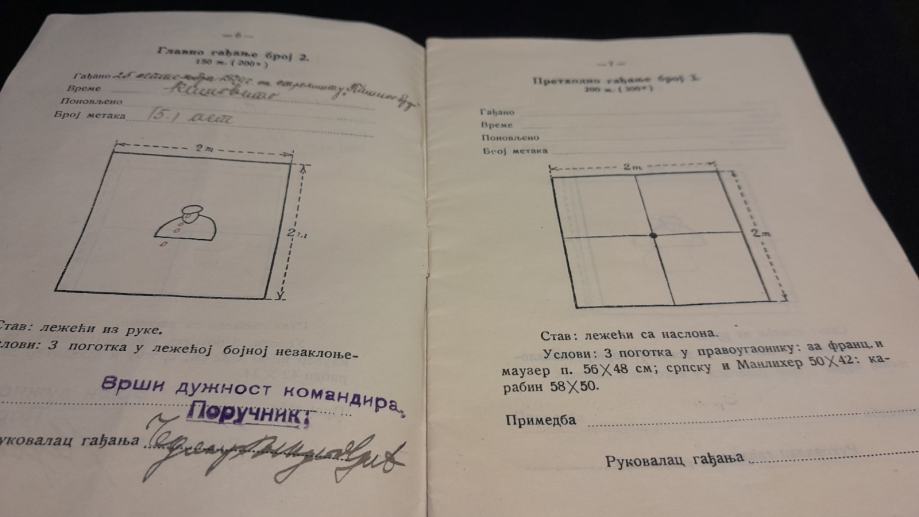 — 6 —
Главно гађање број 2.
150 m. (200*)
Гађано 25
Време
Поновљено
Број метака 15.
2m
2m
Став: лежећи из руке.
слови: 3 поготка у лежећој бојној незаклоње-
Врши дужност командира,
Поручник,
Руковалац гађања
— 7 —
Претходно гађање број
200 m. (300*)
Гађано
Време
Поновљено
Број метака
2m
2m
Став: лежећи са наслона.
Услови: 3 поготка у правоугаонику: за франц. и
маузер п. 56×48 см; српску и Манлихер 50×42: ка-
рабин 58×50.
Примедба
Руковалац гађања